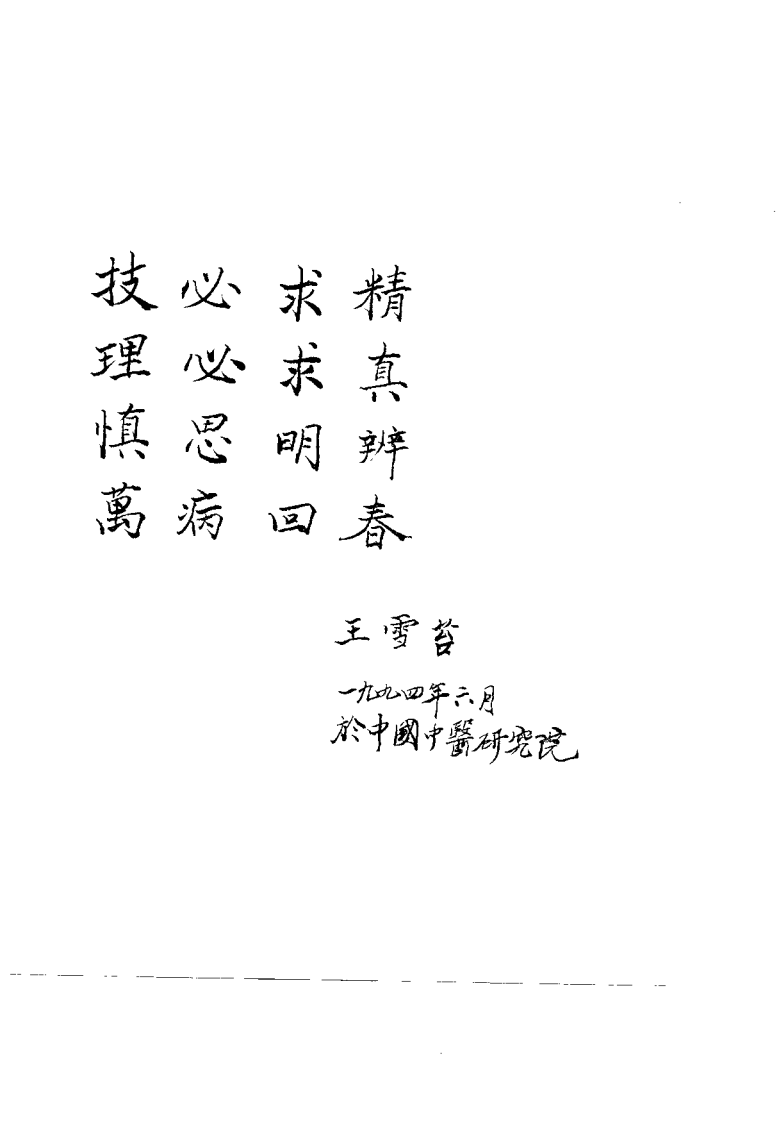 技必求精
理必求真
慎思明辨
萬病回春
王雪苔
一九九四年六月
於中國中醫研究院